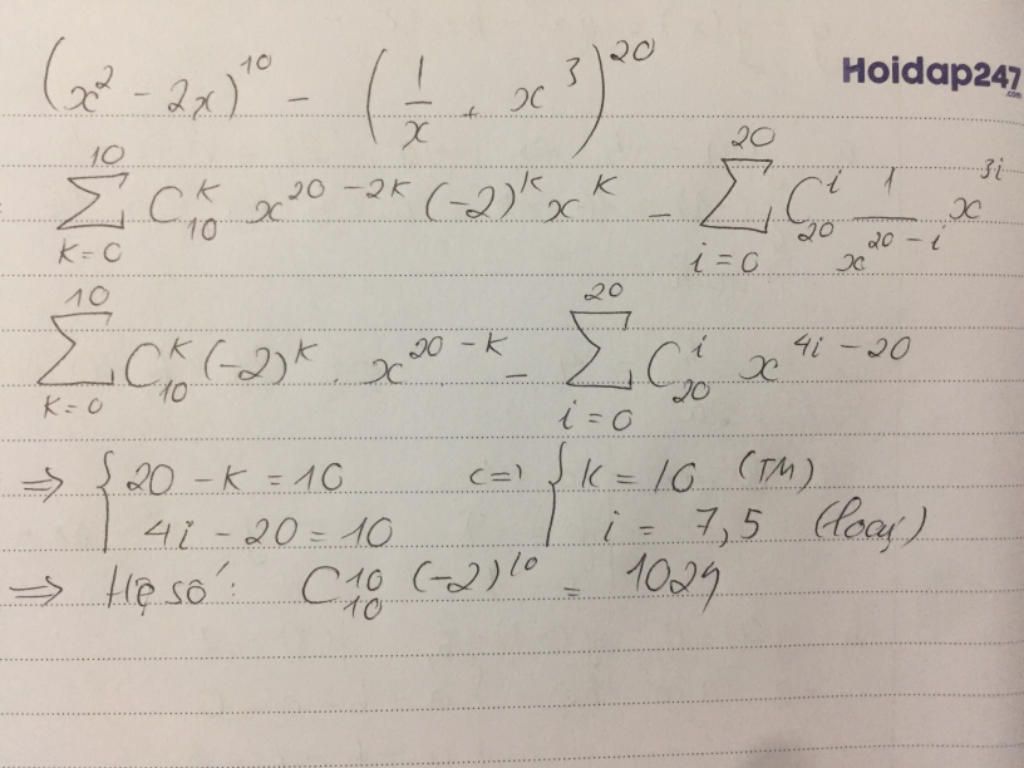 (x² - 2x)¹⁰ - (1/x + x³)²⁰
Hoidap247.com
= ∑_{k=0}^{10} C_{10}^{k} x^{20-2k} (-2)^{k} x^{k} - ∑_{i=0}^{20} C_{20}^{i} 1/x^{20-i} x^{3i}
∑_{k=0}^{10} C_{10}^{k} (-2)^{k} . x^{20-k} - ∑_{i=0}^{20} C_{20}^{i} x^{4i-20}
=> { 20 - k = 10 <=> { k = 10 (TM)
4i - 20 = 10 i = 7,5 (loại)
=> Hệ số: C_{10}^{10} (-2)^{10} = 1024